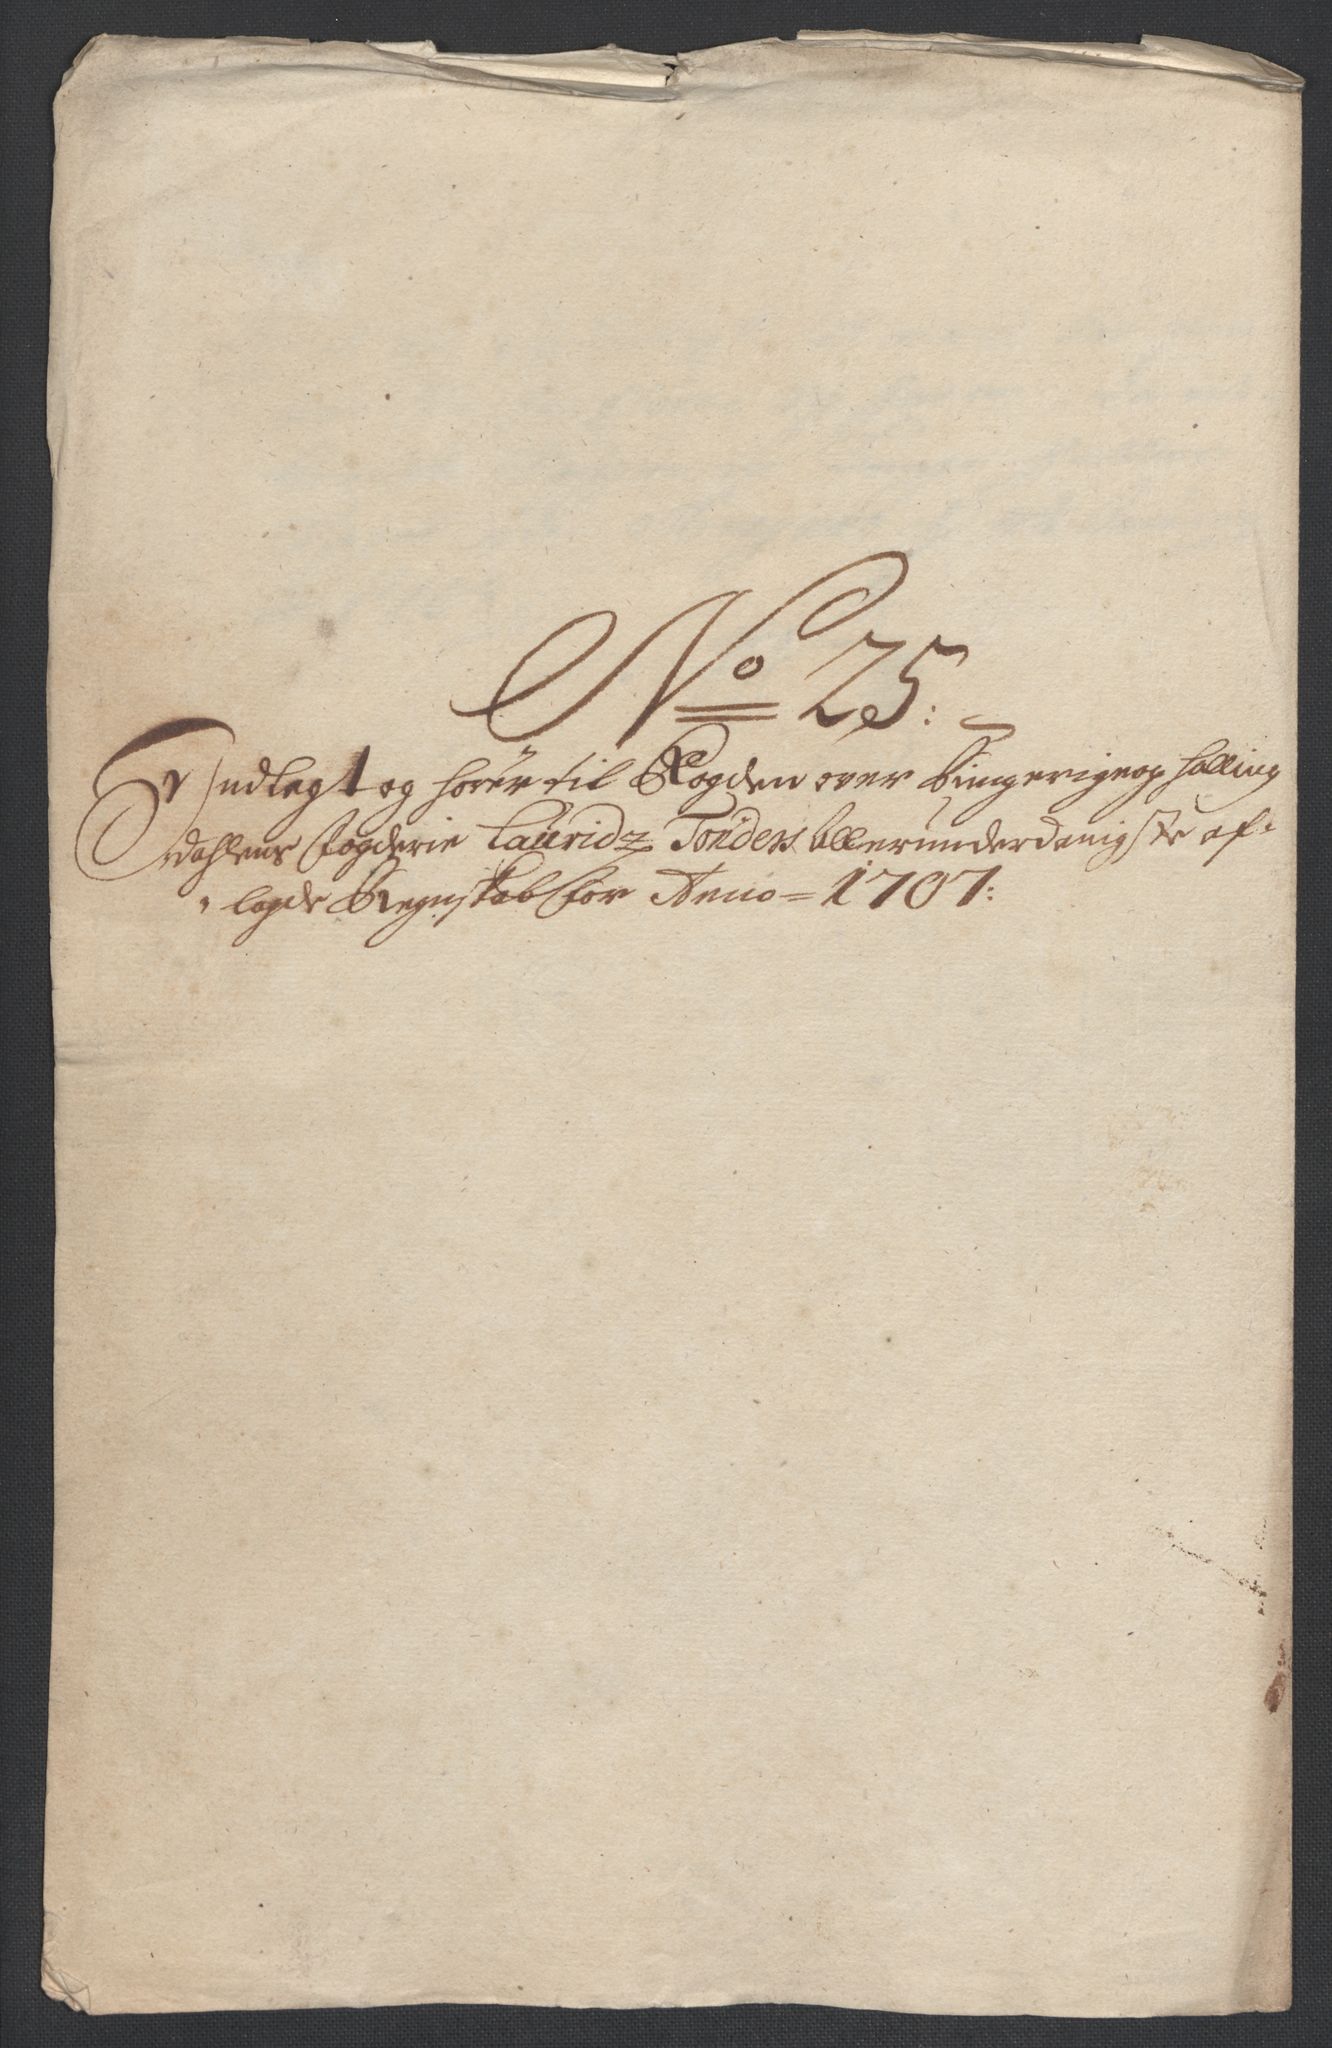 No 25:
Er Indlagt og hører til Fogden over Ringerige og Halling
dahlens Fogderie Lauridz Tonders Allerunderdanigste af-
lagde Regnskab for Anno = 1707: